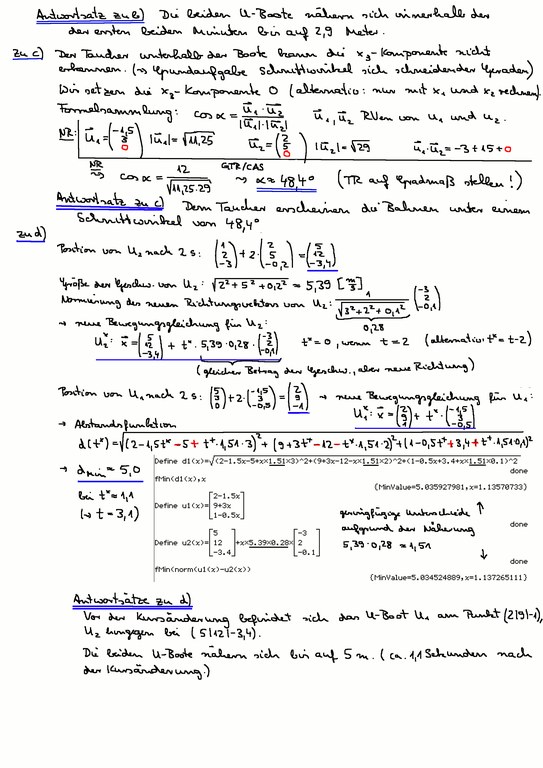 Antwortsatz zu b) Die beiden U-Boote nähern sich innerhalb der
der ersten beiden Minuten bis auf 2,9 Meter.
zu c) Der Taucher unterhalb der Boote kann die x₃-Komponente nicht
erkennen. (→ Grundaufgabe Schnittwinkel sich schneidender Geraden)
Wir setzen die x₃-Komponente 0 (alternativ: nur mit x₁ und x₂ rechnen).
Formelsammlung: cos α = (u⃗₁·u⃗₂)/(|u⃗₁|·|u⃗₂|) u⃗₁, u⃗₂ RVen von u₁ und u₂.
NR: u⃗₁ = (-1,5 3 0) |u⃗₁| = √11,25 u⃗₂ = (2 5 0) |u⃗₂| = √29 u⃗₁·u⃗₂ = -3+15+0
NR ⇝ cos α = 12/√(11,25·29) GTR/CAS ⇝ α ≈ 48,4° (TR auf Gradmaß stellen!)
Antwortsatz zu c) Dem Taucher erscheinen die Bahnen unter einem
Schnittwinkel von 48,4°
zu d)
Position von U₂ nach 2 s: (1 2 -3) + 2·(2 5 -0,2) = (5 12 -3,4)
Größe der Geschw. von U₂: √(2²+5²+0,2²) = 5,39 [m/s]
Normierung des neuen Richtungsvektors von U₂: 1/√(3²+2²+0,1²) (-3 2 -0,1)
0,28
→ neue Bewegungsgleichung für U₂:
U₂*: x⃗ = (5 12 -3,4) + t*·5,39·0,28·(-3 2 -0,1) t*=0, wenn t=2 (alternativ: t*=t-2)
(gleicher Betrag der Geschw., aber neue Richtung)
Position von U₁ nach 2s: (5 3 0) + 2·(-1,5 3 -0,5) = (2 9 -1) → neue Bewegungsgleichung für U₁:
U₁*: x⃗ = (2 9 1) + t*·(-1,5 3 -0,5)
→ Abstandsfunktion
d(t*) = √((2-1,5t*-5+t*·1,51·3)² + (9+3t*-12-t*·1,51·2)² + (1-0,5t*+3,4+t*·1,51·0,1)²
→ dmin = 5,0
bei t* ≈ 1,1
(→ t = 3,1)
Define d1(x)=√(2-1.5x-5+x×1.51×3)^2+(9+3x-12-x×1.51×2)^2+(1-0.5x+3.4+x×1.51×0.1)^2
done
fMin(d1(x),x
{MinValue=5.035927981,x=1.13570733}
Define u1(x)=[2-1.5x 9+3x 1-0.5x]
done
geringfügige Unterschiede
aufgrund der Näherung
5,39·0,28 ≈ 1,51
Define u2(x)=[5 12 -3.4]+x×5.39×0.28×[-3 2 -0.1]
done
fMin(norm(u1(x)-u2(x))
{MinValue=5.034524889,x=1.137265111}
Antwortsätze zu d)
Vor der Kursänderung befindet sich das U-Boot U₁ am Punkt (2|9|-1),
U₂ hingegen bei (5|12|-3,4).
Die beiden U-Boote nähern sich bis auf 5 m. (ca. 1,1 Sekunden nach
der Kursänderung.)